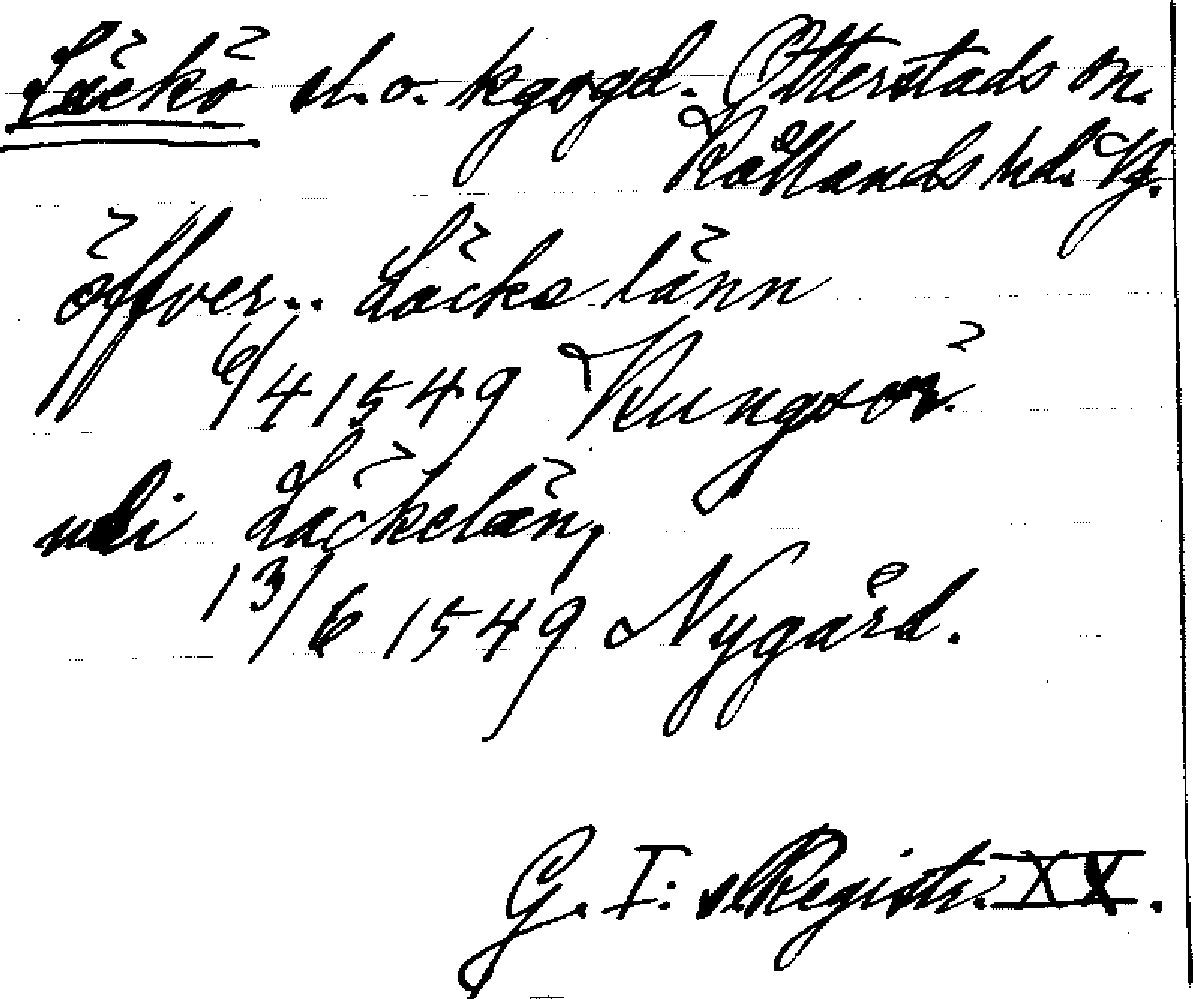 Läckö sl. o. kgsgd. Otterstads sn.
Kållands hd. Vg.
öffver.. Läcke länn
6/4 1549 Kungsör.
udi Läckelän,
13/6 1549 Nygård.
G. I: s Registr. XX.